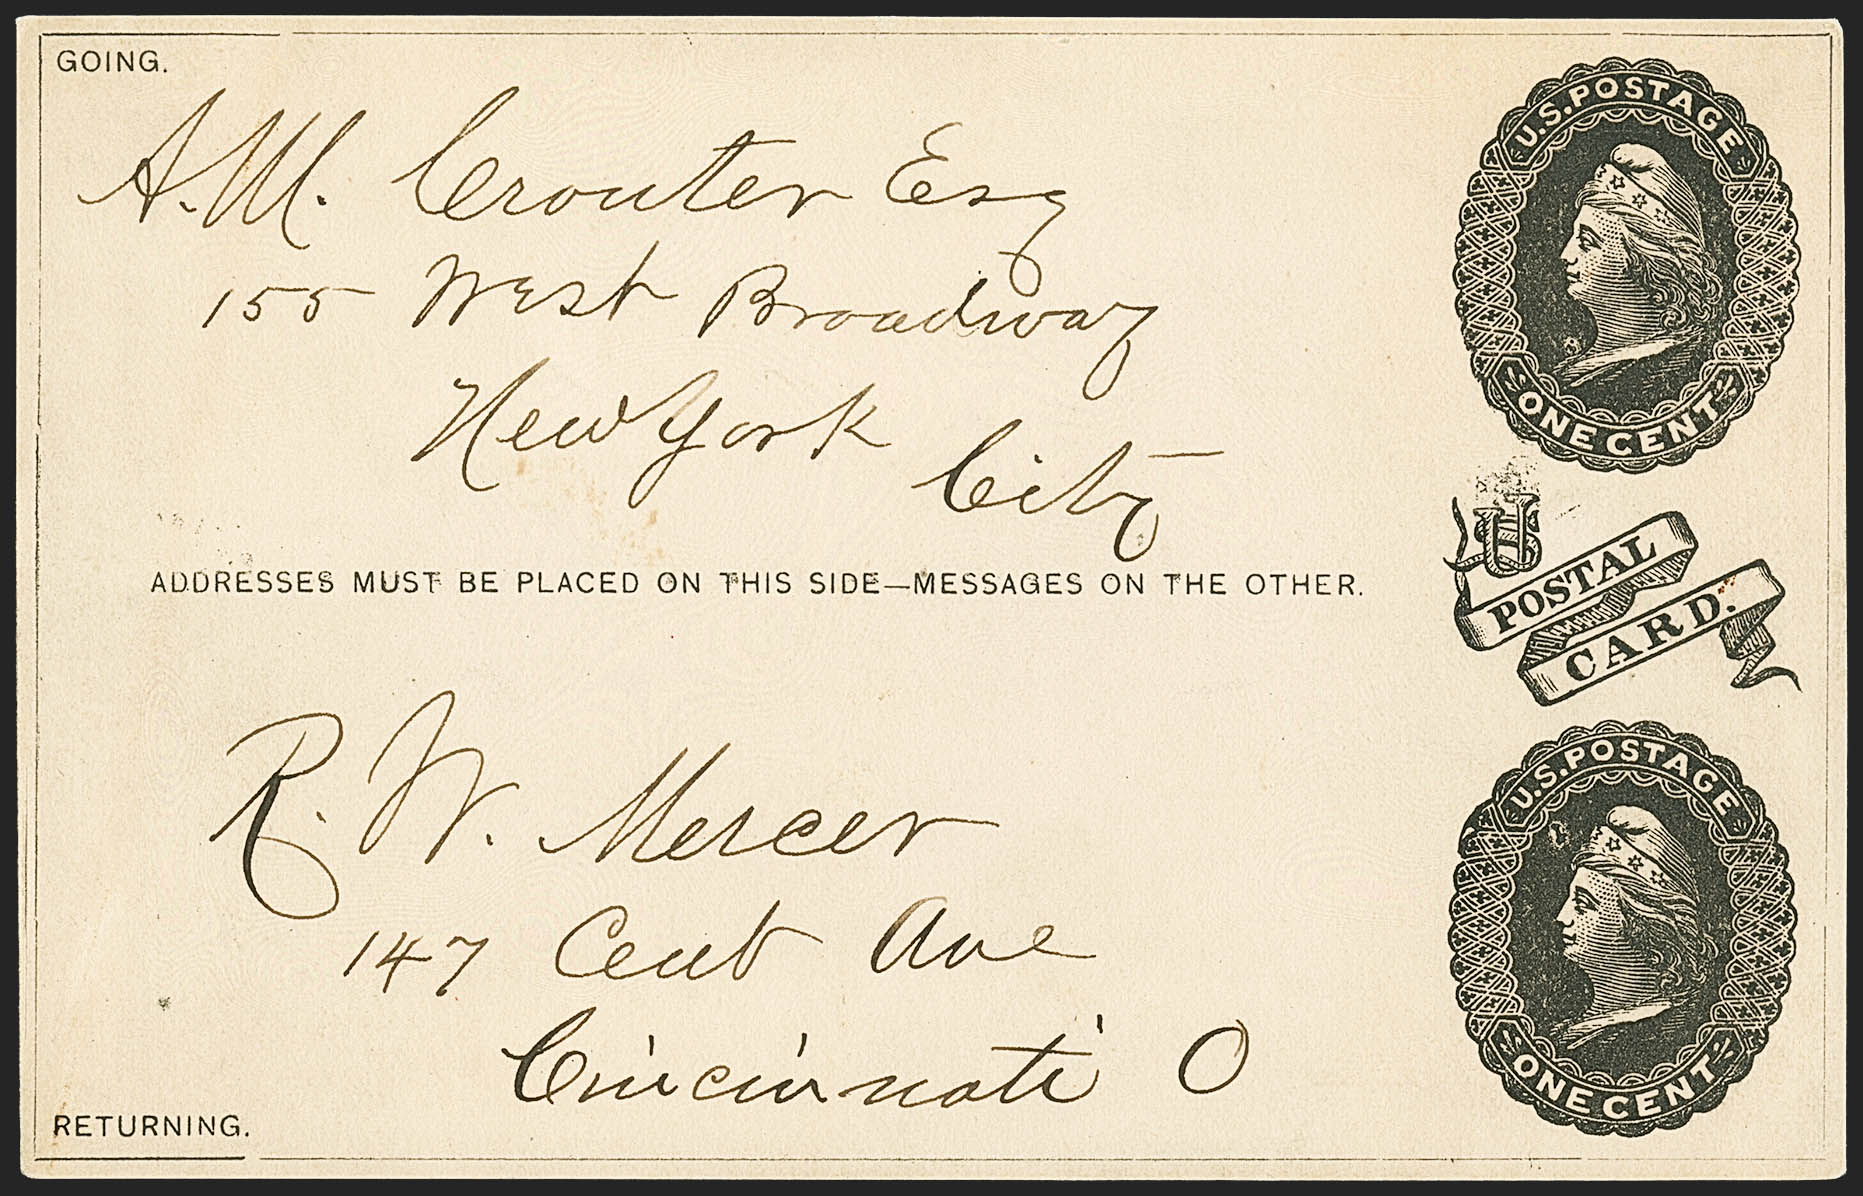 GOING.
A. M. Crouter Esq
155 West Broadway
New York
City
ADDRESSES MUST BE PLACED ON THIS SIDE—MESSAGES ON THE OTHER.
R. W. Mercer
147 Cent Ave
Cincinnati O
RETURNING.
U.S. POSTAGE
ONE CENT
US
POSTAL
CARD.
U.S. POSTAGE
ONE CENT